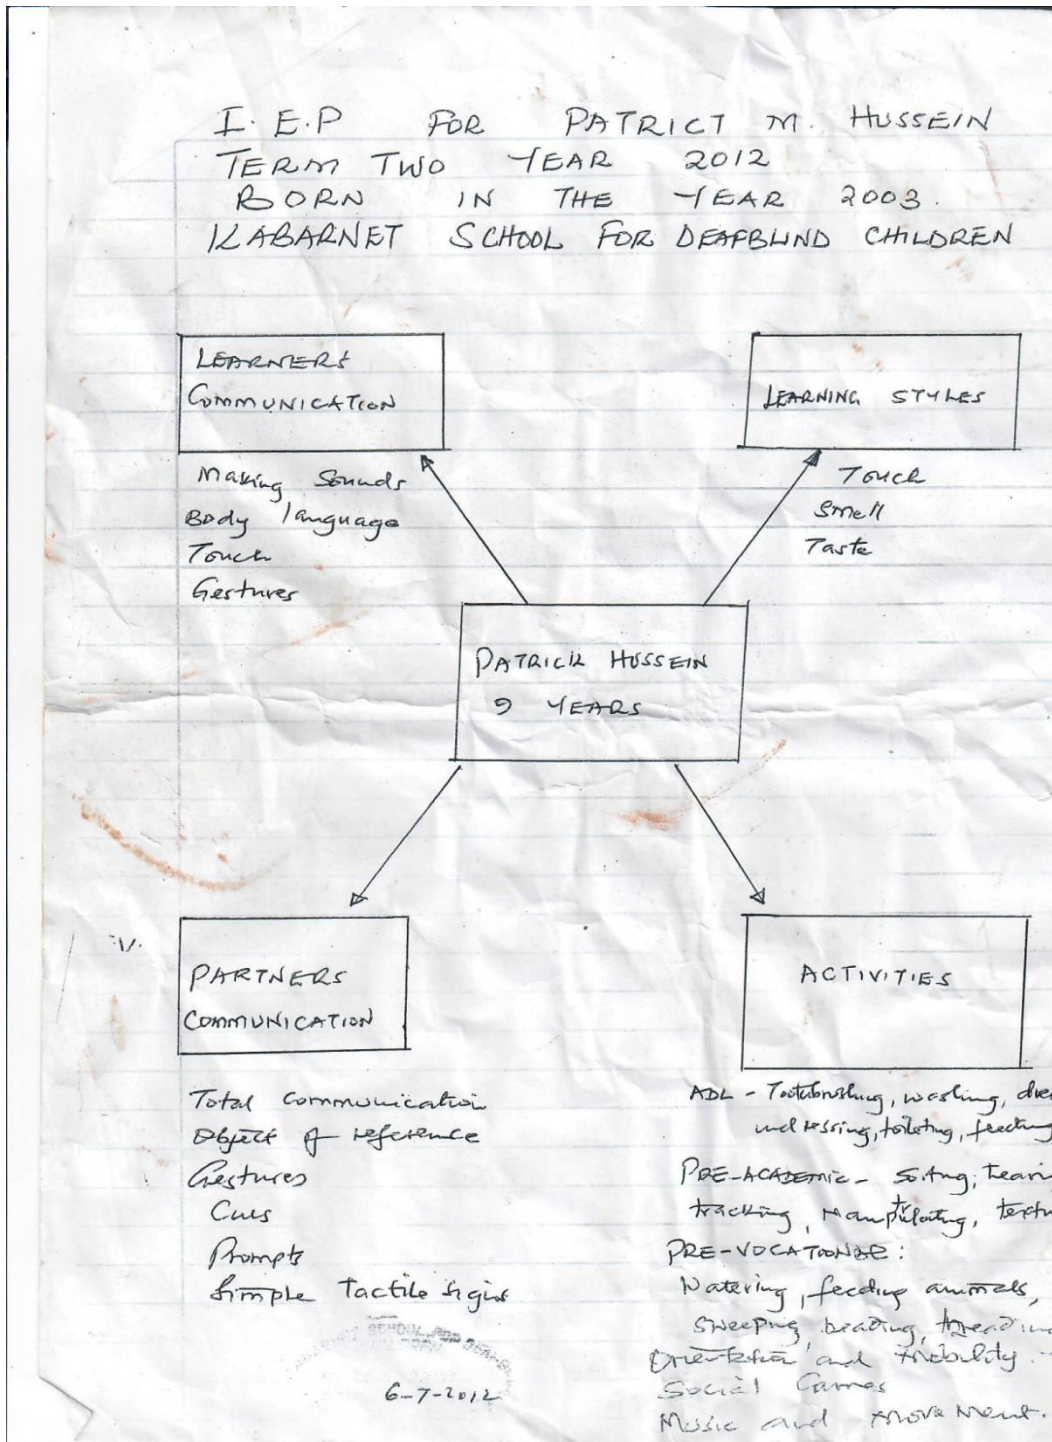 I.E.P FOR PATRICT M. HUSSEIN
TERM TWO YEAR 2012
BORN IN THE YEAR 2003.
KABARNET SCHOOL FOR DEAFBLIND CHILDREN
LEARNERS
COMMUNICATION
Making Sounds
Body language
Touch
Gestures
LEARNING STYLES
Touch
Smell
Taste
PATRICK HUSSEIN
9 YEARS
PARTNERS
COMMUNICATION
Total communication
Object of reference
Gestures
Cues
Prompts
Simple Tactile signs
6-7-2012
ACTIVITIES
ADL - Toothbrushing, washing,
undressing, toileting, feeding
PRE-ACADEMIC -
tracking,
PRE-VOCATIONAL:
Watering, feeding animals,
sweeping, beading,
Orientation and mobility.
Social Games
Music and movement.